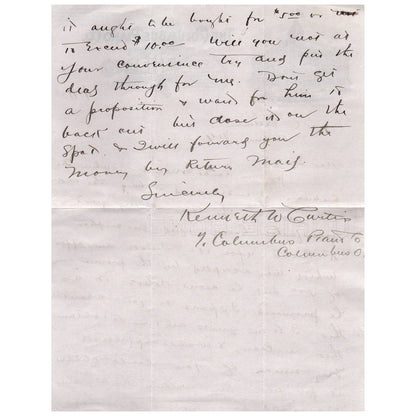 it ought to be bought for $5.00 or not
to Exceed $10.00 Will you not at
your convenience try and put the
deal through for me. Dont get
a proposition & wait for him to
back out but close it on the
Spot & I will forward you the
Money by Return Mail.
Sincerely
Kenneth W Curtis
℅ Columbus Piano Co
Columbus O.